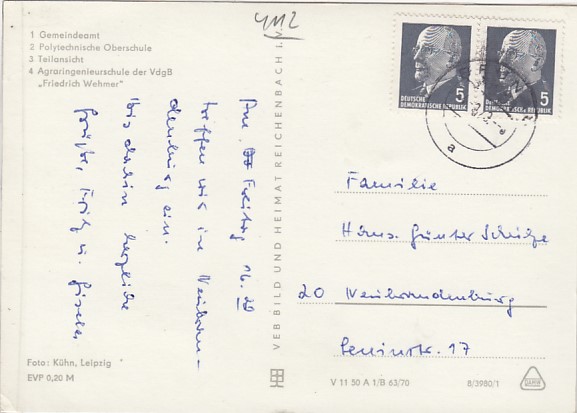 4112
1 Gemeindeamt
2 Polytechnische Oberschule
3 Teilansicht
4 Agraringenieurschule der VdgB
„Friedrich Wehmer"
Am Freitag
treffen wir in Neubran-
denburg ein.
Bis dahin herzliche
Grüße, Fritz u. Gisela
VEB BILD UND HEIMAT REICHENBACH I. V.
DEUTSCHE
DEMOKRATISCHE REPUBLIK
5
DEUTSCHE
DEMOKRATISCHE REPUBLIK
5
a
Familie
Hans-Günter Schulze
20 Neubrandenburg
Leninstr. 17
Foto: Kühn, Leipzig
EVP 0,20 M
V 11 50 A 1/B 63/70
8/3980/1